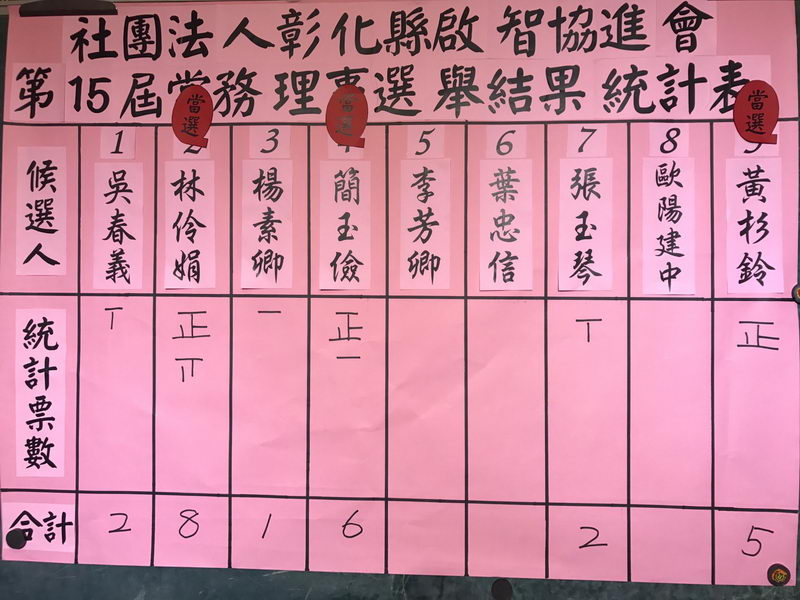 社團法人彰化縣啟智協進會
第15屆常務理事選舉結果統計表
當選 當選 當選
1 2 3 4 5 6 7 8 9
候選人 吳春義 林伶娟 楊素卿 簡玉儉 李芳卿 葉忠信 張玉琴 歐陽建中 黃杉鈴
統計票數 正 一 正 正
一
合計 2 8 1 6 2 5